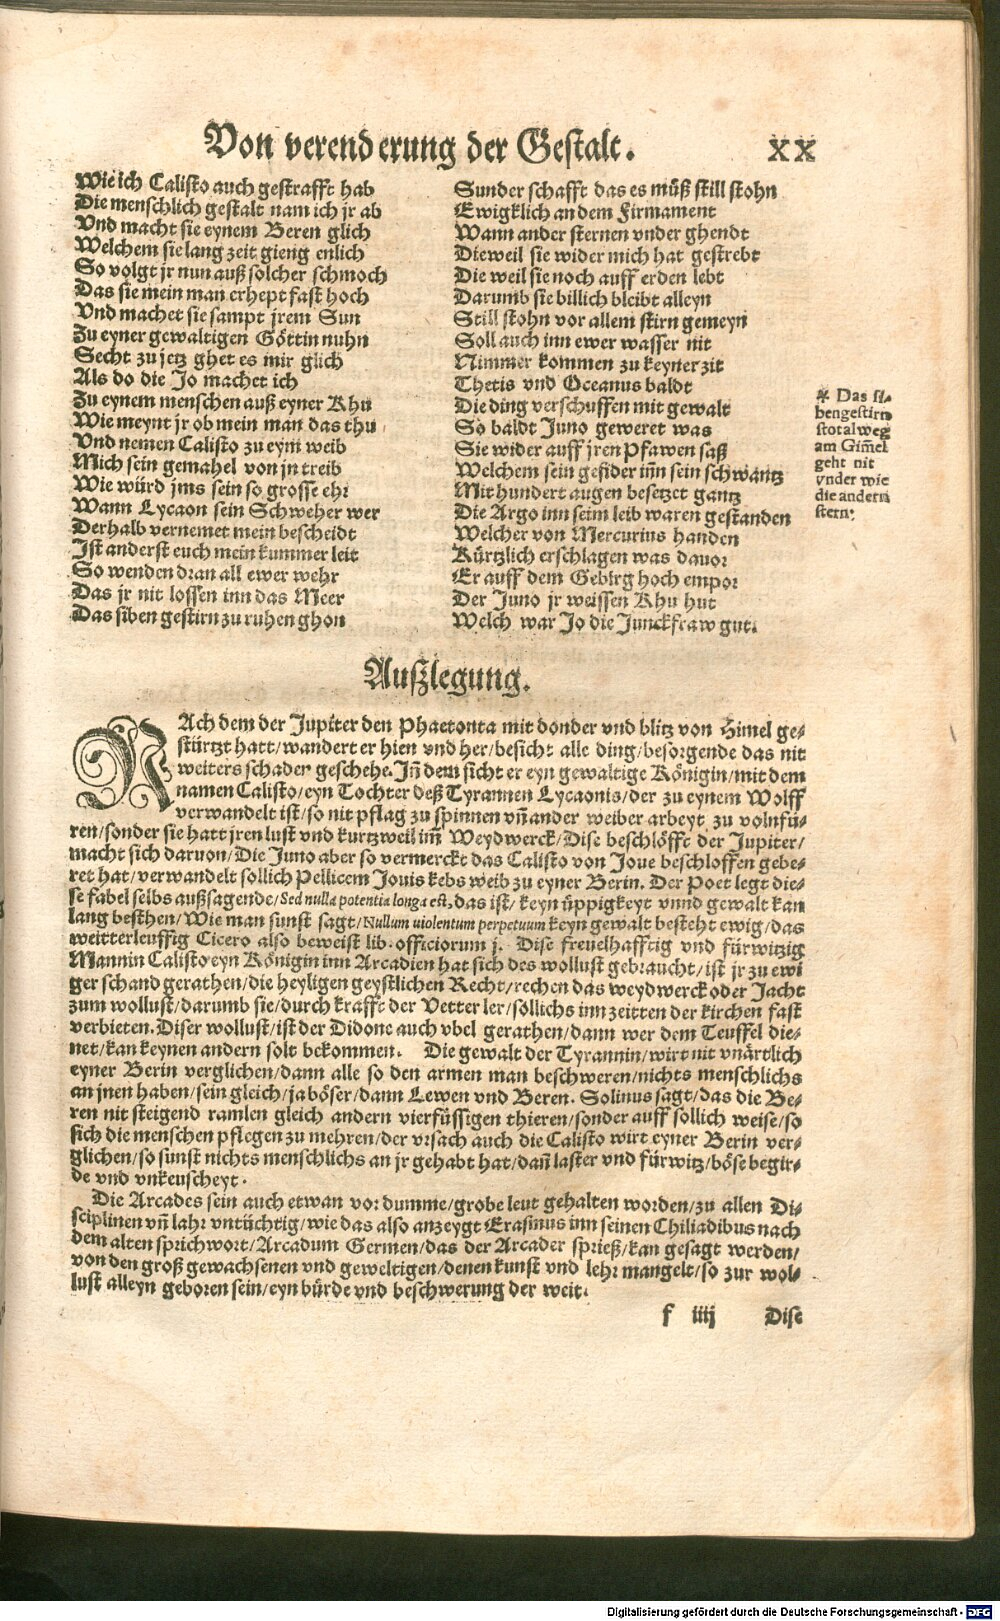 Von verenderung der Gestalt. XX
Wie ich Calisto auch gestrafft hab
Die menschlich gestalt nam ich jr ab
Vnd macht sie eynem Beren glich
Welchem sie lang zeit gieng enlich
So volgt jr nun auß solcher schmoch
Das sie mein man erhept fast hoch
Vnd machet sie sampt jrem Sun
Zu eyner gewaltigen Göttin nuhn
Secht zu jetz ghet es mir glich
Als do die Jo machet ich
Zu eynem menschen auß eyner Khu
Wie meynt jr ob mein man das thu
Vnd nemen Calisto zu eym weib
Mich sein gemahel von jn treib
Wie würd jms sein so grosse ehr
Wann Lycaon sein Schweher wer
Derhalb vernemet mein bescheidt
Ist anderst euch mein kummer leit
So wenden dran all ewer wehr
Das jr nit lossen inn das Meer
Das siben gestirn zu ruhen ghon
Sunder schafft das es müß still stohn
Ewigklich an dem Firmament
Wann ander sternen vnder ghendt
Dieweil sie wider mich hat gestrebt
Die weil sie noch auff erden lebt
Darumb sie billich bleibt alleyn
Still stohn vor allem stirn gemeyn
Soll auch inn ewer wasser nit
Nimmer kommen zu keyner zit
Thetis vnd Oceanus baldt
Die ding verschuffen mit gewalt
So baldt Juno geweret was
Sie wider auff jren Pfawen saß
Welchem sein gefider inn sein schwantz
Mit hundert augen besetzet gantz
Die Argo inn seim leib waren gestanden
Welcher von Mercurius handen
Kürtzlich erschlagen was dauor
Er auff dem Gebirg hoch empor
Der Juno jr weissen Khu hut
Welch war Jo die Junckfraw gut.
* Das si-
bengestirn
stotalweg
am Gim̃el
geht nit
vnder wie
die andern
stern.
Außlegung.
NAch dem der Jupiter den Phaetonta mit donder vnd blitz von Himel ge-
stürtzt hatt/wandert er hien vnd her/besicht alle ding/besorgende das nit
weiters schaden geschehe. Jñ dem sicht er eyn gewaltige Königin/mit dem
namen Calisto/eyn Tochter deß Tyrannen Lycaonis/der zu eynem Wolff
verwandelt ist/so nit pflag zu spinnen vñ ander weiber arbeyt zu volnfü-
ren/sonder sie hatt jren lust vnd kurtzweil im̃ Weydwerck/Dise beschlöfft der Jupiter/
macht sich daruon/Die Juno aber so vermerckt das Calisto von Joue beschloffen gebe-
ret hat/verwandelt sollich Pellicem Jouis kebs weib zu eyner Berin. Der Poet legt die-
se fabel selbs außsagende/Sed nulla potentia longa est, das ist/keyn üppigkeyt vnnd gewalt kan
lang besthen/Wie man sunst sagt/Nullum uiolentum perpetuum keyn gewalt besteht ewig/das
weitterleuffig Cicero also beweist lib. officiorum j. Dise freuelhafftig vnd fürwitzig
Mannin Calisto eyn Königin inn Arcadien hat sich des wollust gebraucht/ist jr zu ewi
ger schand gerathen/die heyligen geystlichen Recht/rechen das weydwerck oder Jacht
zum wollust/darumb sie/durch krafft der Vetter ler/söllichs inn zeitten der kirchen fast
verbieten. Diser wollust/ist der Didone auch vbel gerathen/dann wer dem Teuffel die-
net/kan keynen andern solt bekommen. Die gewalt der Tyrannin/wirt nit vnärtlich
eyner Berin verglichen/dann alle so den armen man beschweren/nichts menschlichs
an jnen haben/sein gleich/ja böser/dann Lewen vnd Beren. Solinus sagt/das die Be-
ren nit steigend ramlen gleich andern vierfüssigen thieren/sonder auff sollich weise/so
sich die menschen pflegen zu mehren/der vrsach auch die Calisto wirt eyner Berin ver-
glichen/so sunst nichts menschlichs an jr gehabt hat/dañ laster vnd fürwitz/böse begir-
de vnd vnkeuscheyt.
Die Arcades sein auch etwan vor dumme/grobe leut gehalten worden/zu allen Di-
sciplinen vñ lahr vntüchtig/wie das also anzeygt Erasmus inn seinen Chiliadibus nach
dem alten sprichwort/Arcadum Germen/das der Arcader sprieß/kan gesagt werden/
von den groß gewachsenen vnd geweltigen/denen kunst vnd lehr mangelt/so zur wol-
lust alleyn geboren sein/eyn bürde vnd beschwerung der welt.
f iiij Dise
Digitalisierung gefördert durch die Deutsche Forschungsgemeinschaft - DFG